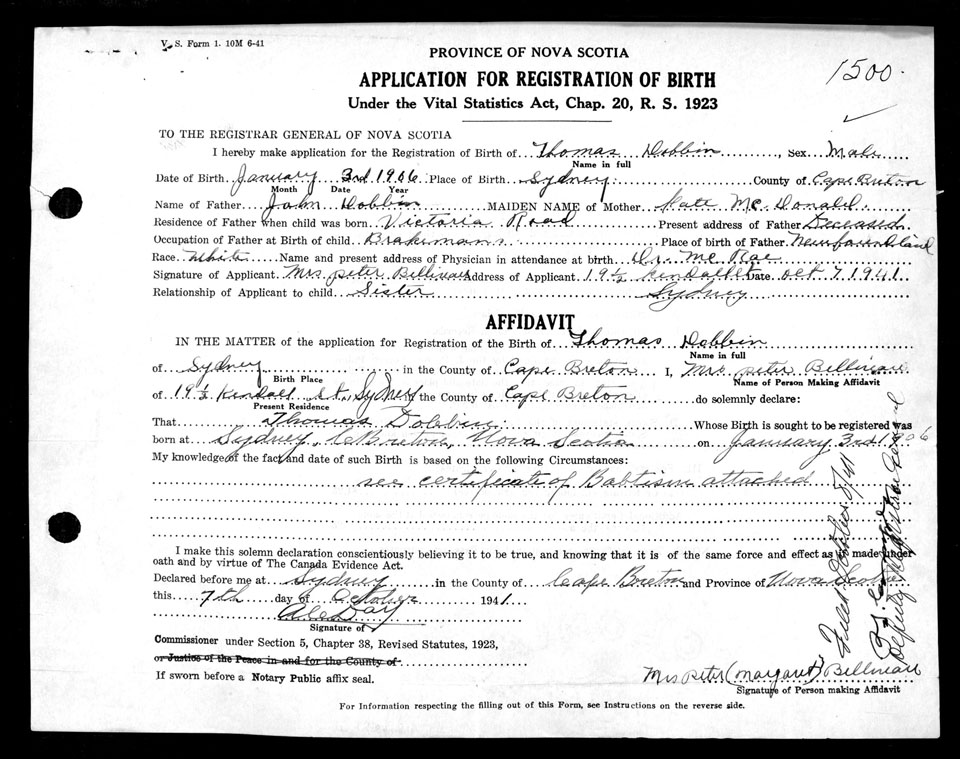 V. S. Form 1. 10M 6-41
PROVINCE OF NOVA SCOTIA
1500.
APPLICATION FOR REGISTRATION OF BIRTH
Under the Vital Statistics Act, Chap. 20, R. S. 1923
TO THE REGISTRAR GENERAL OF NOVA SCOTIA
I hereby make application for the Registration of Birth of Thomas Dobbin, Sex Male
Name in full
Date of Birth January 3rd 1906 Place of Birth Sydney County of Cape Breton
Month Date Year
Name of Father John Dobbin MAIDEN NAME of Mother Kate Mc Donald
Residence of Father when child was born Victoria Road Present address of Father Deceased
Occupation of Father at Birth of child Brakeman Place of birth of Father Newfoundland
Race White Name and present address of Physician in attendance at birth Dr. Mc Rae
Signature of Applicant Mrs peter Belliveau Address of Applicant 19½ Kendall St Date Oct 7 1941
Relationship of Applicant to child Sister Sydney
AFFIDAVIT
IN THE MATTER of the application for Registration of the Birth of Thomas Dobbin
Name in full
of Sydney in the County of Cape Breton I, Mrs peter Belliveau
Birth Place Name of Person Making Affidavit
of 19½ Kendall St. Sydney the County of Cape Breton do solemnly declare:
Present Residence
That Thomas Dobbin Whose Birth is sought to be registered was
born at Sydney, C Breton, Nova Scotia on January 3rd 1906
My knowledge of the fact and date of such Birth is based on the following Circumstances:
see certificate of Babtism attached
I make this solemn declaration conscientiously believing it to be true, and knowing that it is of the same force and effect as if made under
oath and by virtue of The Canada Evidence Act.
Declared before me at Sydney in the County of Cape Breton and Province of Nova Scotia
this 7th day of October 1941
Day
Signature of
Commissioner under Section 5, Chapter 38, Revised Statutes, 1923,
or Justice of the Peace in and for the County of
If sworn before a Notary Public affix seal.
Mrs Peter (Margaret) Belliveau
Signature of Person making Affidavit
For Information respecting the filling out of this Form, see Instructions on the reverse side.
Filed October 8/41
Deputy Registrar General